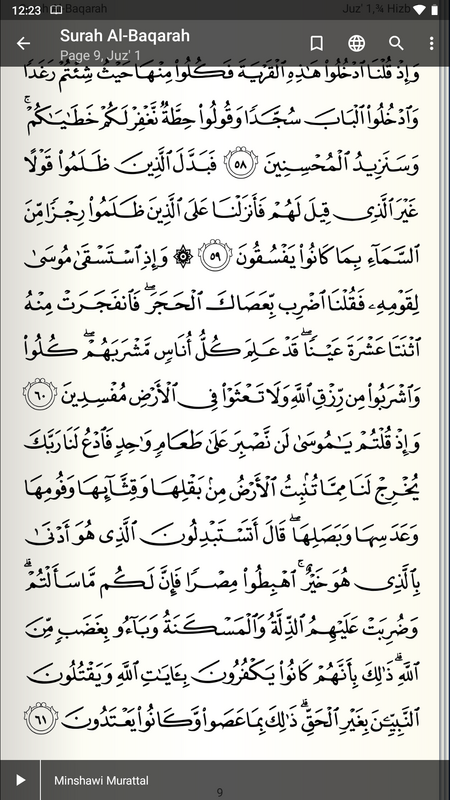 12:23
Surah Al-Baqarah
Page 9, Juz' 1
Juz' 1,¾ Hizb
وَإِذْ قُلْنَا ٱدْخُلُوا۟ هَٰذِهِ ٱلْقَرْيَةَ فَكُلُوا۟ مِنْهَا حَيْثُ شِئْتُمْ رَغَدًا
وَٱدْخُلُوا۟ ٱلْبَابَ سُجَّدًا وَقُولُوا۟ حِطَّةٌ نَّغْفِرْ لَكُمْ خَطَٰيَٰكُمْ ۚ
وَسَنَزِيدُ ٱلْمُحْسِنِينَ ٥٨ فَبَدَّلَ ٱلَّذِينَ ظَلَمُوا۟ قَوْلًا
غَيْرَ ٱلَّذِى قِيلَ لَهُمْ فَأَنزَلْنَا عَلَى ٱلَّذِينَ ظَلَمُوا۟ رِجْزًا مِّنَ
ٱلسَّمَآءِ بِمَا كَانُوا۟ يَفْسُقُونَ ٥٩ ۞ وَإِذِ ٱسْتَسْقَىٰ مُوسَىٰ
لِقَوْمِهِۦ فَقُلْنَا ٱضْرِب بِّعَصَاكَ ٱلْحَجَرَ ۖ فَٱنفَجَرَتْ مِنْهُ
ٱثْنَتَا عَشْرَةَ عَيْنًا ۖ قَدْ عَلِمَ كُلُّ أُنَاسٍ مَّشْرَبَهُمْ ۖ كُلُوا۟
وَٱشْرَبُوا۟ مِن رِّزْقِ ٱللَّهِ وَلَا تَعْثَوْا۟ فِى ٱلْأَرْضِ مُفْسِدِينَ ٦٠
وَإِذْ قُلْتُمْ يَٰمُوسَىٰ لَن نَّصْبِرَ عَلَىٰ طَعَامٍ وَٰحِدٍ فَٱدْعُ لَنَا رَبَّكَ
يُخْرِجْ لَنَا مِمَّا تُنۢبِتُ ٱلْأَرْضُ مِنۢ بَقْلِهَا وَقِثَّآئِهَا وَفُومِهَا
وَعَدَسِهَا وَبَصَلِهَا ۖ قَالَ أَتَسْتَبْدِلُونَ ٱلَّذِى هُوَ أَدْنَىٰ
بِٱلَّذِى هُوَ خَيْرٌ ۚ ٱهْبِطُوا۟ مِصْرًا فَإِنَّ لَكُم مَّا سَأَلْتُمْ ۗ
وَضُرِبَتْ عَلَيْهِمُ ٱلذِّلَّةُ وَٱلْمَسْكَنَةُ وَبَآءُو بِغَضَبٍ مِّنَ
ٱللَّهِ ۗ ذَٰلِكَ بِأَنَّهُمْ كَانُوا۟ يَكْفُرُونَ بِـَٔايَٰتِ ٱللَّهِ وَيَقْتُلُونَ
ٱلنَّبِيِّـۧنَ بِغَيْرِ ٱلْحَقِّ ۗ ذَٰلِكَ بِمَا عَصَوا۟ وَّكَانُوا۟ يَعْتَدُونَ ٦١
Minshawi Murattal
9